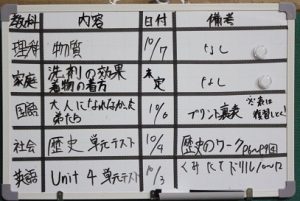 教科 内容 日付 備考
理科 物質 10/7 なし
家庭 洗剤の効果 着物の着方 未定 なし
国語 大人になれなかった弟たち 10/6 プリント裏表
社会 歴史 単元テスト 10/4 歴史のワーク
英語 Unit 4 単元テスト 10/3 くみたてドリル